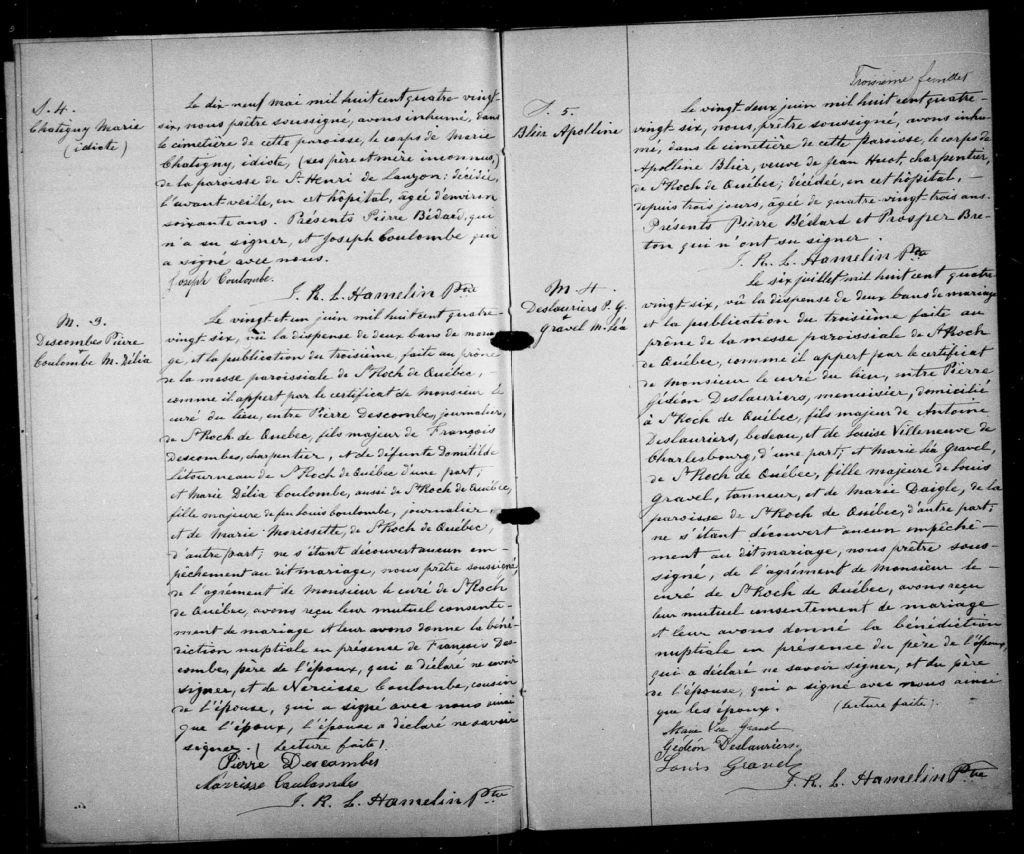 S. 4.
Chatigny Marie
(idiote)
Le dix-neuf mai mil huit cent quatre-vingt-
six, nous prêtre soussigné, avons inhumé, dans
le cimetière de cette paroisse, le corps de Marie
Chatigny, idiote, (ses père et mère inconnus,)
de la paroisse de St. Henri de Lauzon; décédée,
l'avant-veille, en cet hôpital, âgée d'environ
soixante ans. Présents Pierre Bédard, qui
n'a su signer, et Joseph Coulombe qui
a signé avec nous.
Joseph Coulombe.
J. R. L. Hamelin Ptre
M. 3.
Descombes Pierre
&
Coulombe M. Délia
Le vingt et un juin mil huit cent quatre-
vingt-six, vû la dispense de deux bans de maria-
ge, et la publication du troisième, faite au prône
de la messe paroissiale de St Roch de Québec,
comme il appert par le certificat de Monsieur le
curé du lieu, entre Pierre Descombes, journalier,
de St Roch de Québec, fils majeur de François
Descombes, charpentier, et de défunte Domitilde
Létourneau de St Roch de Québec d'une part;
et Marie Délia Coulombe, aussi de St Roch de Québec,
fille majeure de feu Louis Coulombe, journalier,
et de Marie Morissette, de St Roch de Québec,
d'autre part; ne s'étant découvert aucun em-
pêchement au dit mariage, nous prêtre soussigné,
de l'agrément de Monsieur le curé de St Roch
de Québec, avons reçu leur mutuel consente-
ment de mariage et leur avons donné la béné-
diction nuptiale en présence de François Des-
combes, père de l'époux, qui a déclaré ne savoir
signer, et de Narcisse Coulombe, cousin
de l'épouse, qui a signé avec nous ainsi
que l'époux, l'épouse a déclaré ne savoir
signer. (Lecture faite).
Pierre Descombes
Narcisse Coulombe
J. R. L. Hamelin Ptre
Troisième feuillet
S. 5.
Blier Apolline
Le vingt-deux juin mil huit cent quatre-
vingt six, nous, prêtre soussigné, avons inhu-
mé, dans le cimetière de cette paroisse, le corps de
Apolline Blier, veuve de Jean Huot, charpentier,
de St Roch de Québec; décédée, en cet hôpital,
depuis trois jours, âgée de quatre-vingt-trois ans.
Présents Pierre Bédard et Prosper Bre-
ton qui n'ont su signer.
J. R. L. Hamelin Ptre
M. 4.
Deslauriers P. G.
&
Gravel M. Léa
Le six juillet mil huit cent quatre
vingt six, vû la dispense de deux bans de mariage
et la publication du troisième faite au
prône de la messe paroissiale de St Roch
de Québec, comme il appert par le certificat
de Monsieur le curé du lieu, entre Pierre
Gédéon Deslauriers, menuisier, domicilié
à St Roch de Québec, fils majeur de Antoine
Deslauriers, bedeau, et de Louise Villeneuve de
Charlesbourg, d'une part; et Marie Léa Gravel,
de St Roch de Québec, fille majeure de Louis
Gravel, tanneur, et de Marie Daigle, de la
paroisse de St Roch de Québec, d'autre part;
ne s'étant découvert aucun empêche-
ment au dit mariage, nous prêtre sous-
signé, de l'agrément de Monsieur le
curé de St Roch de Québec, avons reçu
leur mutuel consentement de mariage
et leur avons donné la bénédiction
nuptiale en présence du père de l'époux,
qui a déclaré ne savoir signer, et du père
de l'épouse, qui a signé avec nous ainsi
que les époux. (Lecture faite).
Marie Léa Gravel
Gédéon Deslauriers.
Louis Gravel
J. R. L. Hamelin Ptre